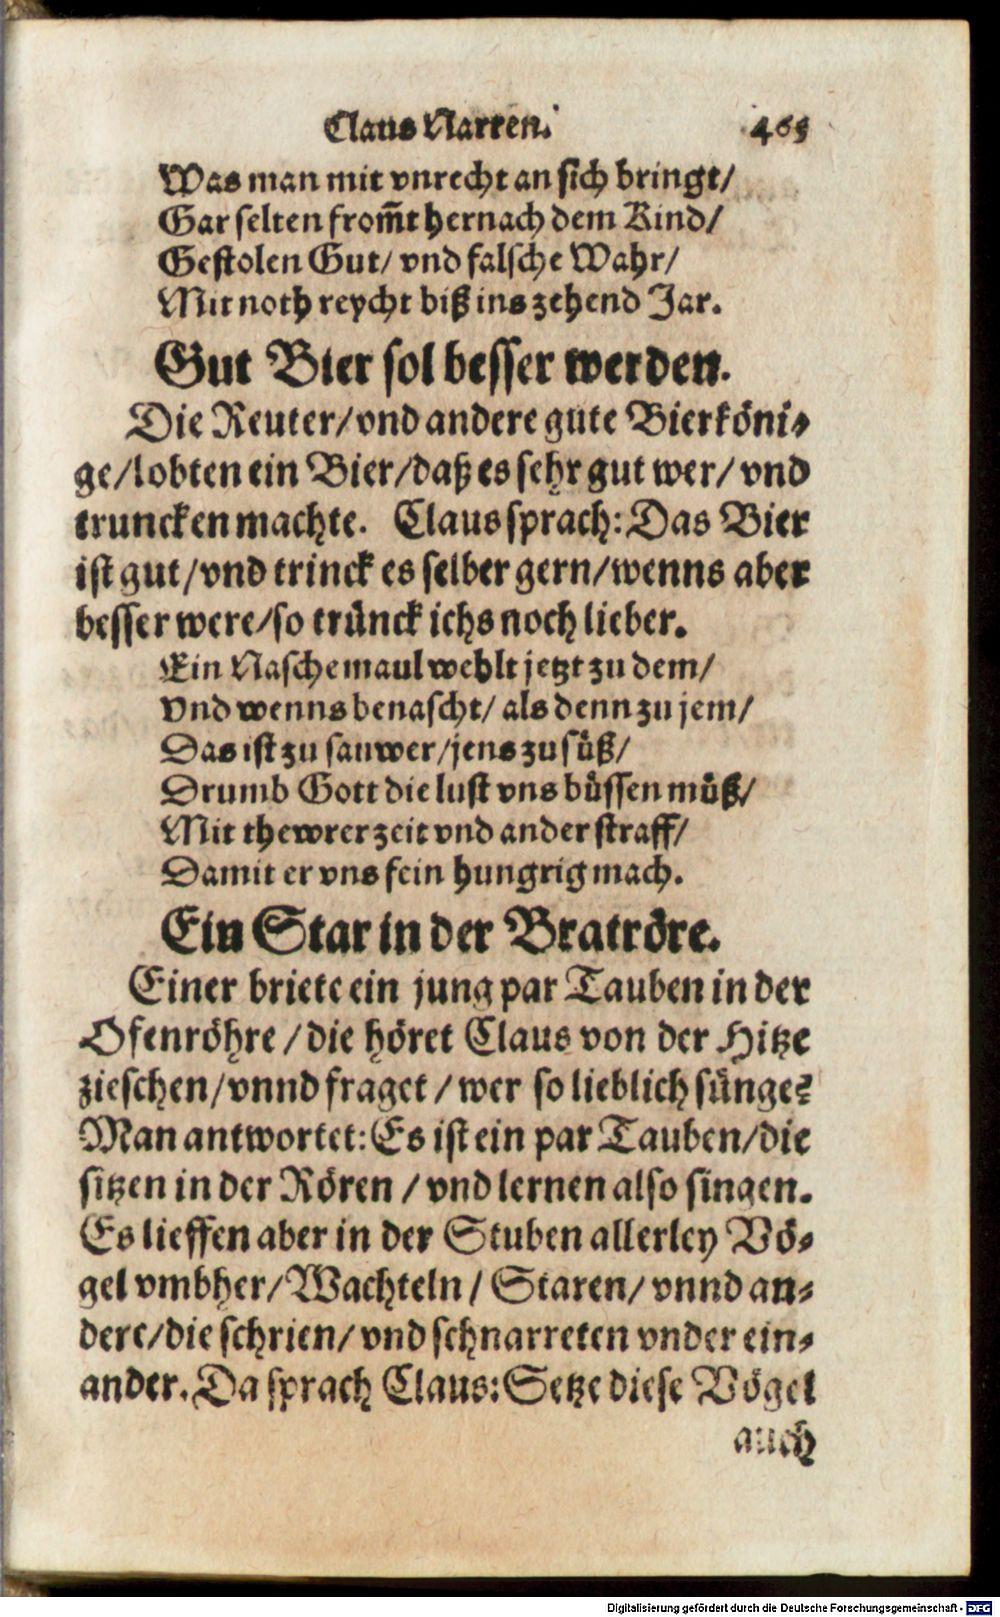 Claus Narren. 465
Was man mit vnrecht an sich bringt/
Gar selten from̃t hernach dem Kind/
Gestolen Gut/ vnd falsche Wahr/
Mit noth reycht biß ins zehend Jar.
Gut Bier sol besser werden.
Die Reuter/vnd andere gute Bierköni⸗
ge/lobten ein Bier/daß es sehr gut wer/ vnd
truncken machte. Claus sprach: Das Bier
ist gut/vnd trinck es selber gern/wenns aber
besser were/so trünck ichs noch lieber.
Ein Naschemaul wehlt jetzt zu dem/
Vnd wenns benascht/ als denn zu jem/
Das ist zu sauwer/jens zu süß/
Drumb Gott die lust vns büssen müß/
Mit thewrer zeit vnd ander straff/
Damit er vns fein hungrig mach.
Ein Star in der Bratröre.
Einer briete ein jung par Tauben in der
Ofenröhre /die höret Claus von der Hitze
zieschen/vnnd fraget /wer so lieblich sünge?
Man antwortet: Es ist ein par Tauben/die
sitzen in der Rören /vnd lernen also singen.
Es lieffen aber in der Stuben allerley Vö⸗
gel vmbher/Wachteln/ Staren/ vnnd an⸗
dere/die schrien/ vnd schnarreten vnder ein⸗
ander. Da sprach Claus: Setze diese Vögel
auch
Digitalisierung gefördert durch die Deutsche Forschungsgemeinschaft - DFG